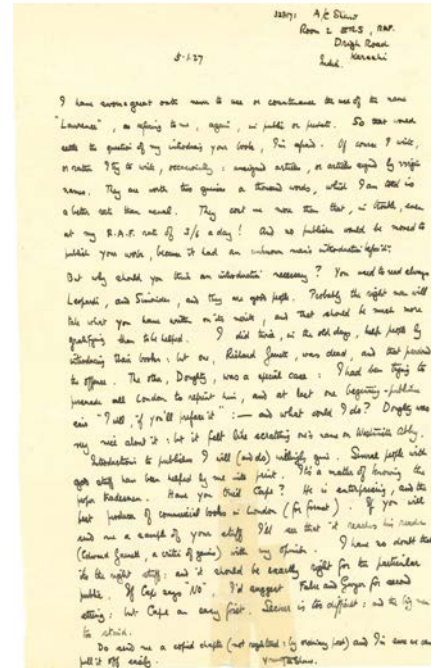 338171 A/C Shaw
Room 2 E.R.S., RAF.
Drigh Road
Karachi
India.
5-1-27
I have sworn a great oath never to use or countenance the use of the name
"Lawrence", as referring to me, again, in public or private. So that would
settle the question of my introducing your books, I'm afraid. Of course I write,
or rather I try to write, occasionally: unsigned articles, or articles signed by
name. They are worth two guineas a thousand words, which I am told is
a better rate than usual. They cost me more than that, in trouble, even
at my R.A.F. rate of 3/6 a day! And no publisher would be moved to
publish your work, because it had an unknown man's introduction before it.
But why should you think an introduction necessary? You need to read always
Leopardi, and, and they are good people. Probably the right man will
take what you have written on its merits, and that should be much more
gratifying than to be helped. I did twice, in the old days, help people by
introducing their books: but one, Richard Garnett, was dead, and that pardoned
the offence. The other, Doughty, was a special case: I had been trying to
persuade all London to reprint him, and at last one beginning-publisher
said "I will if you'll preface it": — and what could I do? Doughty was
very nice about it: but it felt like scratting one's name on Westminster Abbey.
Introductions to publishers I will (and do) willingly give. Several people with
good stuff have been helped by me into print. It's a matter of knowing the
proper tradesmen. Have you tried Cape? He is enterprising, and the
best producer of commercial books in London (for format). If you will
send me a sample of your stuff I'll see that it reaches his reader
(Edward Garnett, a critic of genius) with my opinion. I have no doubt that
its the right stuff: and it should be exactly right for the particular
public. If Cape says "NO", I'd suggest Faber and Gwyer for second
string: but Cape an easy first. Secker is too difficult: and the big men
too staid.
Do send me a copied chapter (not registered: by ordinary post) and I'm sure we can
pull it off easily.
Yours T E Shaw.